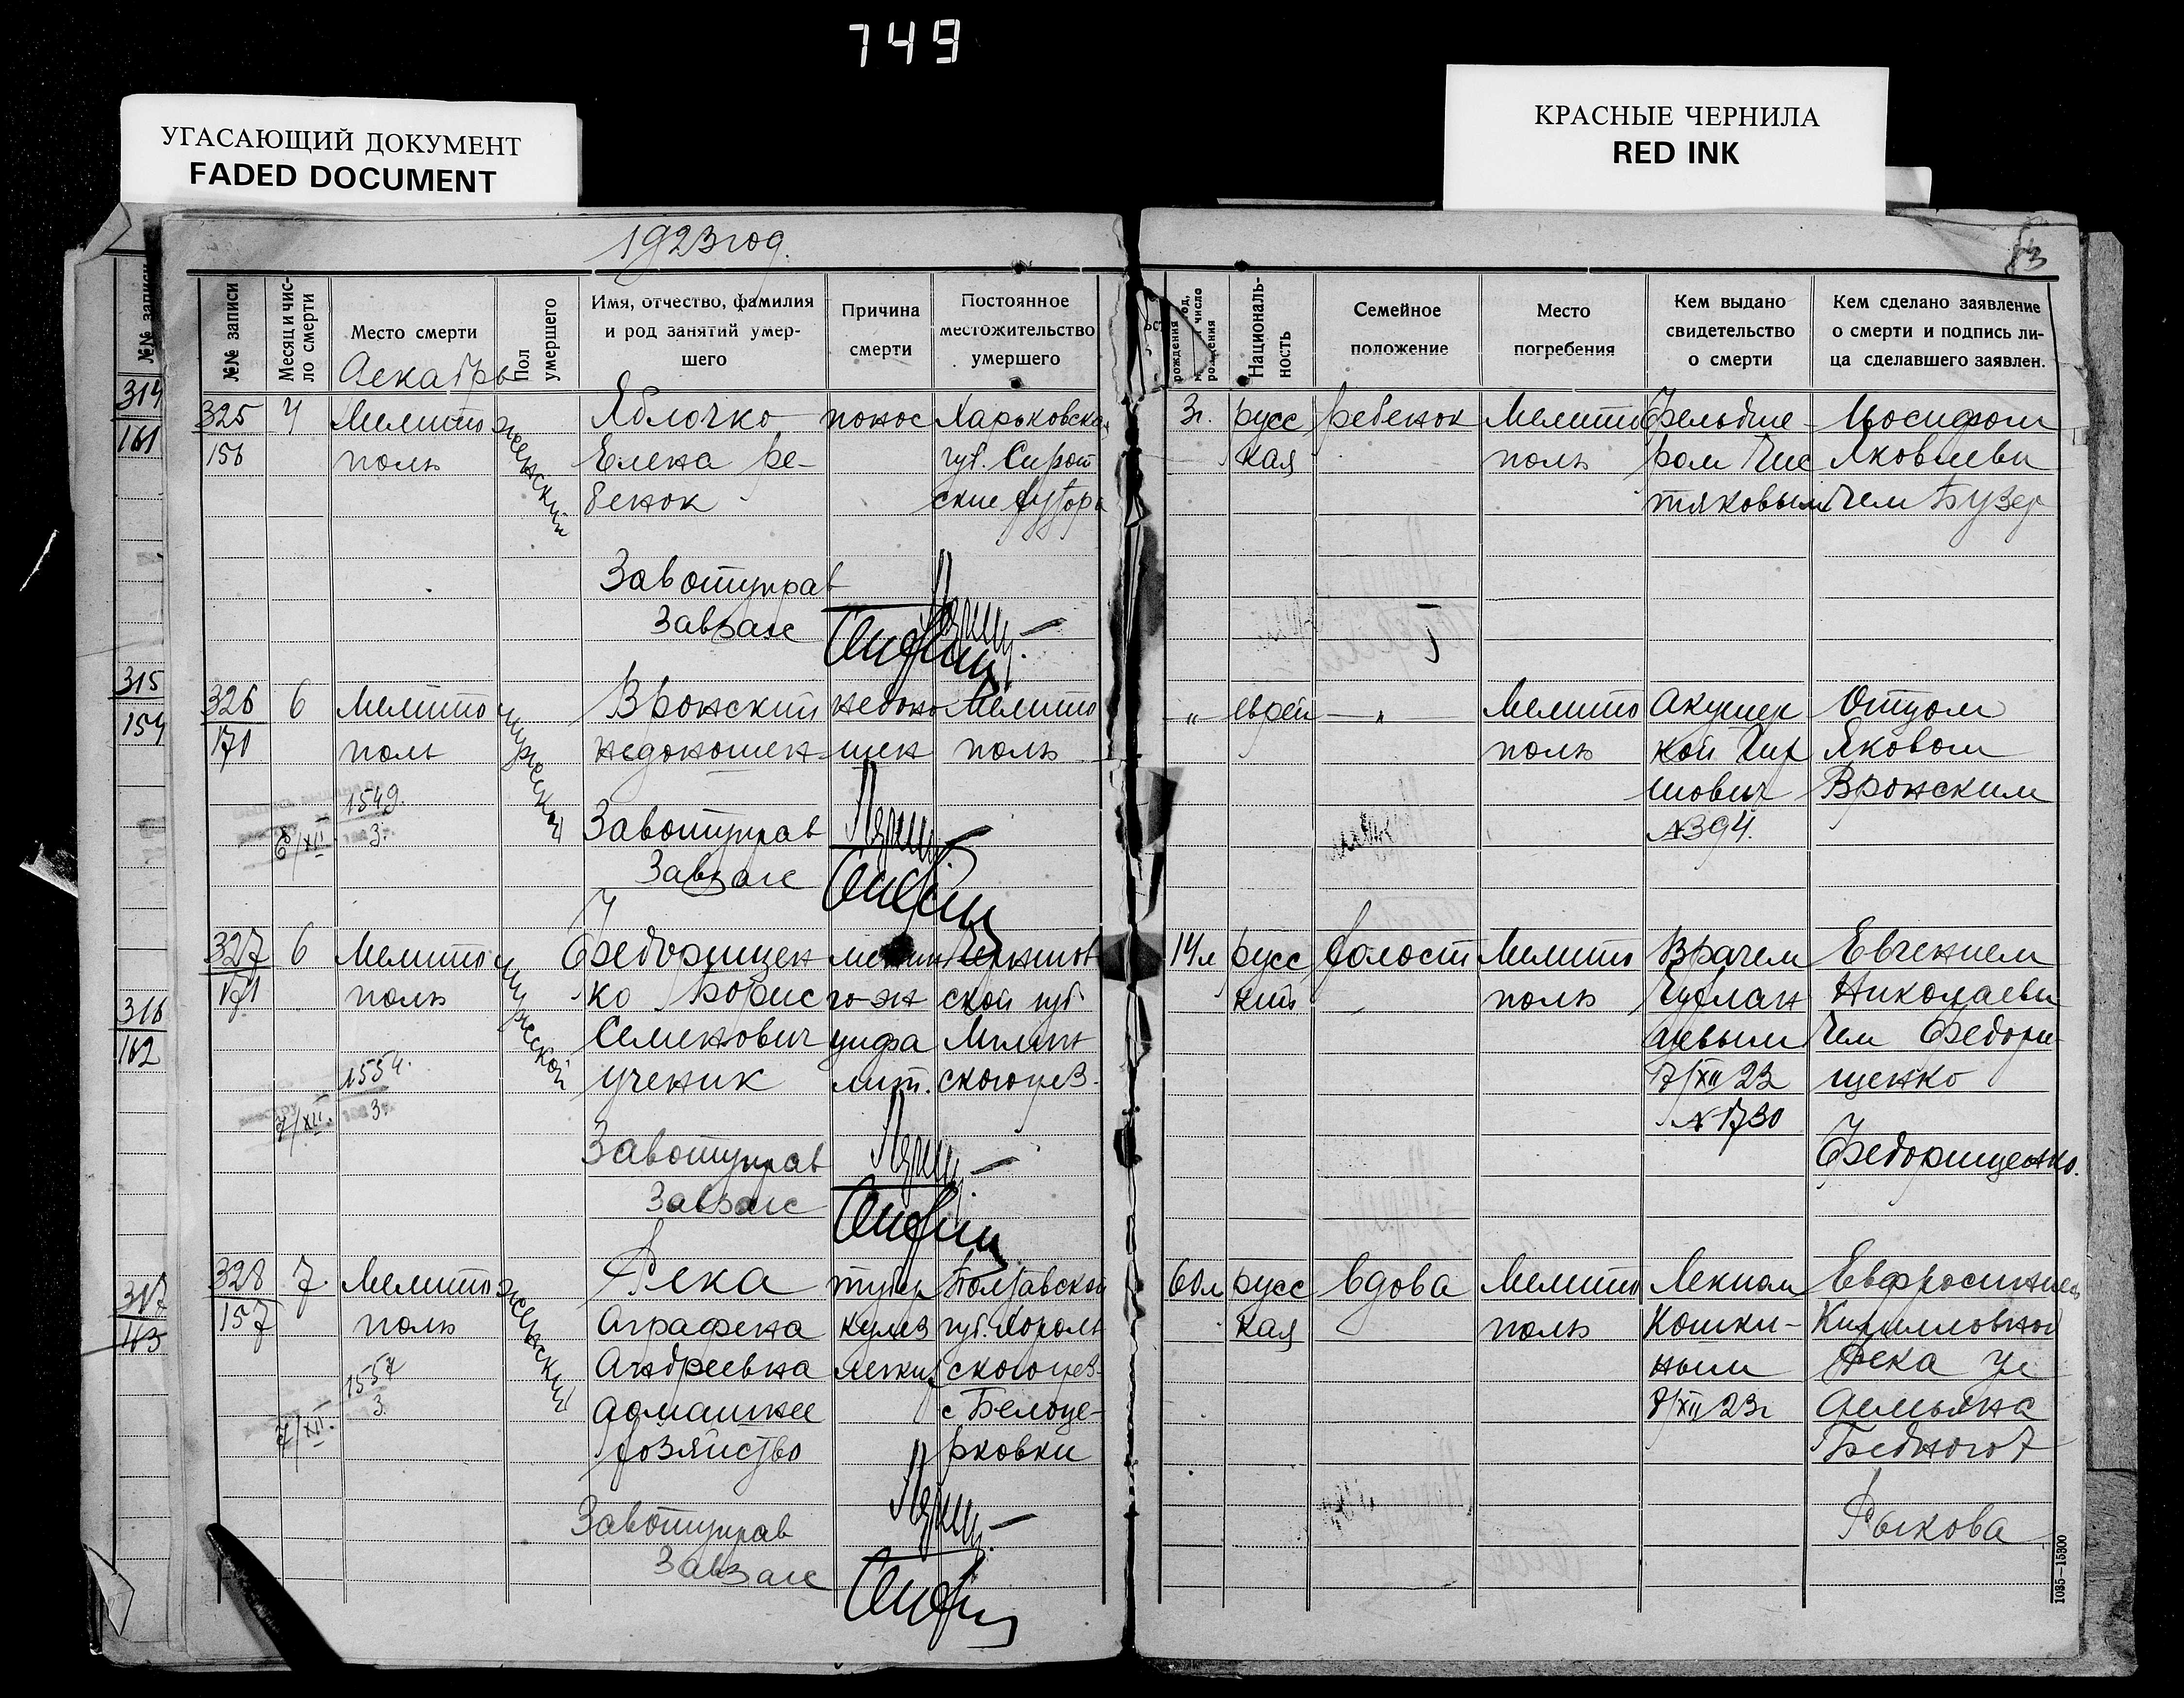 749
УГАСАЮЩИЙ ДОКУМЕНТ
FADED DOCUMENT
КРАСНЫЕ ЧЕРНИЛА
RED INK
1923 год.
№№ записи
Месяц и чис-
ло смерти
Место смерти
Декабрь
Пол
умершего
Имя, отчество, фамилия
и род занятий умер-
шего
Причина
смерти
Постоянное
местожительство
умершего
рождения
Националь-
ность
Семейное
положение
Место
погребения
Кем выдано
свидетельство
о смерти
Кем сделано заявление
о смерти и подпись ли-
ца сделавшего заявлен.
314
161
315
154
316
162
317
163
325
156
4
Мелито
поль
женский
Яблочко
Елена ре-
бенок
понос
Харьковская
губ. Сирот
ские хутора
3г.
русс
кая
ребенок
Мелито
поль
Фельдше-
ром Чис
тяковым
Иосифом
Яковлеви
чем Бузер
Завотуправ
Завзагс
326
171
6
Мелито
поль
мужеский
Вронский
недоношен
недоно
шен
Мелито
поль
"
еврей
"
Мелито
поль
Акушер
кой Гир
шович
№394.
Отцом
Яковом
Вронским
1549.
3.
6/XII
Завотуправ
Завзагс
327
171
6
Мелито
поль
мужеской
Федорищен
ко Борис
Семенович
ученик
го-эн
цефа
лит.
Чернигов
ской губ
Мглин
ского уез.
14л
русс
кий
холост
Мелито
поль
Врачем
7/XII 23
№ 1730
Евгением
Николаеви
чем Федори
щенко
Федорищенко.
1554.
3.
7/XII.
Завотуправ
Завзагс
328
157
7.
Мелито
поль
женский
Река
Аграфена
Андреевна
домашнее
хозяйство
тубер
кулез
легких
Полтавской
губ. Хороль
ского уез.
с Белоце-
рковки
60л
русс
кая
вдова
Мелито
поль
Лекпом
Кошки-
ным
7/XII 23г
Евфросиньей
Кирилловной
Река ул
Демьяна
Бедного 7
Рыкова
1557
3.
7/XII.
Завотуправ
Завзагс
1035—15300